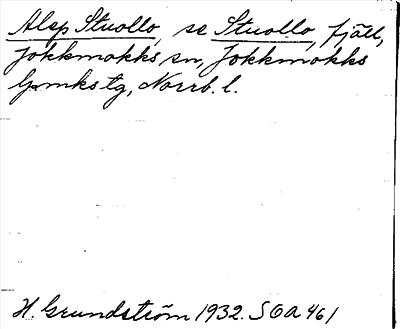 Alep Stuollo, se Stuollo, fjäll,
Jokkmokks sn, Jokkmokks
lpmks tg, Norrb. l.
H. Grundström 1932. SOA 461